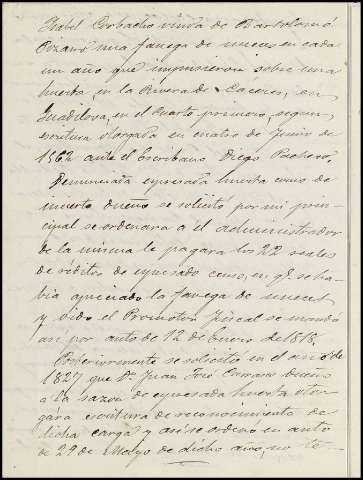 Isabel Corbacho viuda de Bartolomé
Pizarro una fanega de nueces en cada
un año que impusieron sobre una
huerta, en la Rivera de Caceres, en
Guadilova, en el Cuarto primero, segun
escritura otorgada en cuatro de Junio de
1562 ante el Escribano Diego Pacheco.
Denunciada espresada huerta como de
incierto dueño se solicitó por mi prin-
cipal se ordenara a el administrador
de la misma le pagara los 22 reales
de réditos de espresado censo, en q.e se ha-
bia apreciado la fanega de nueces,
y oido el Promotor Fiscal se mandó
asi por auto de 12 de Enero de 1818.
Posteriormente se solicitó en el año de
1827 que D. Juan José Carrasco dueño
a la sazon de espresada huerta otor-
gara escritura de reconocimiento de
dicha carga y asi se ordenó en auto
de 29 de Mayo de dicho año, no te-